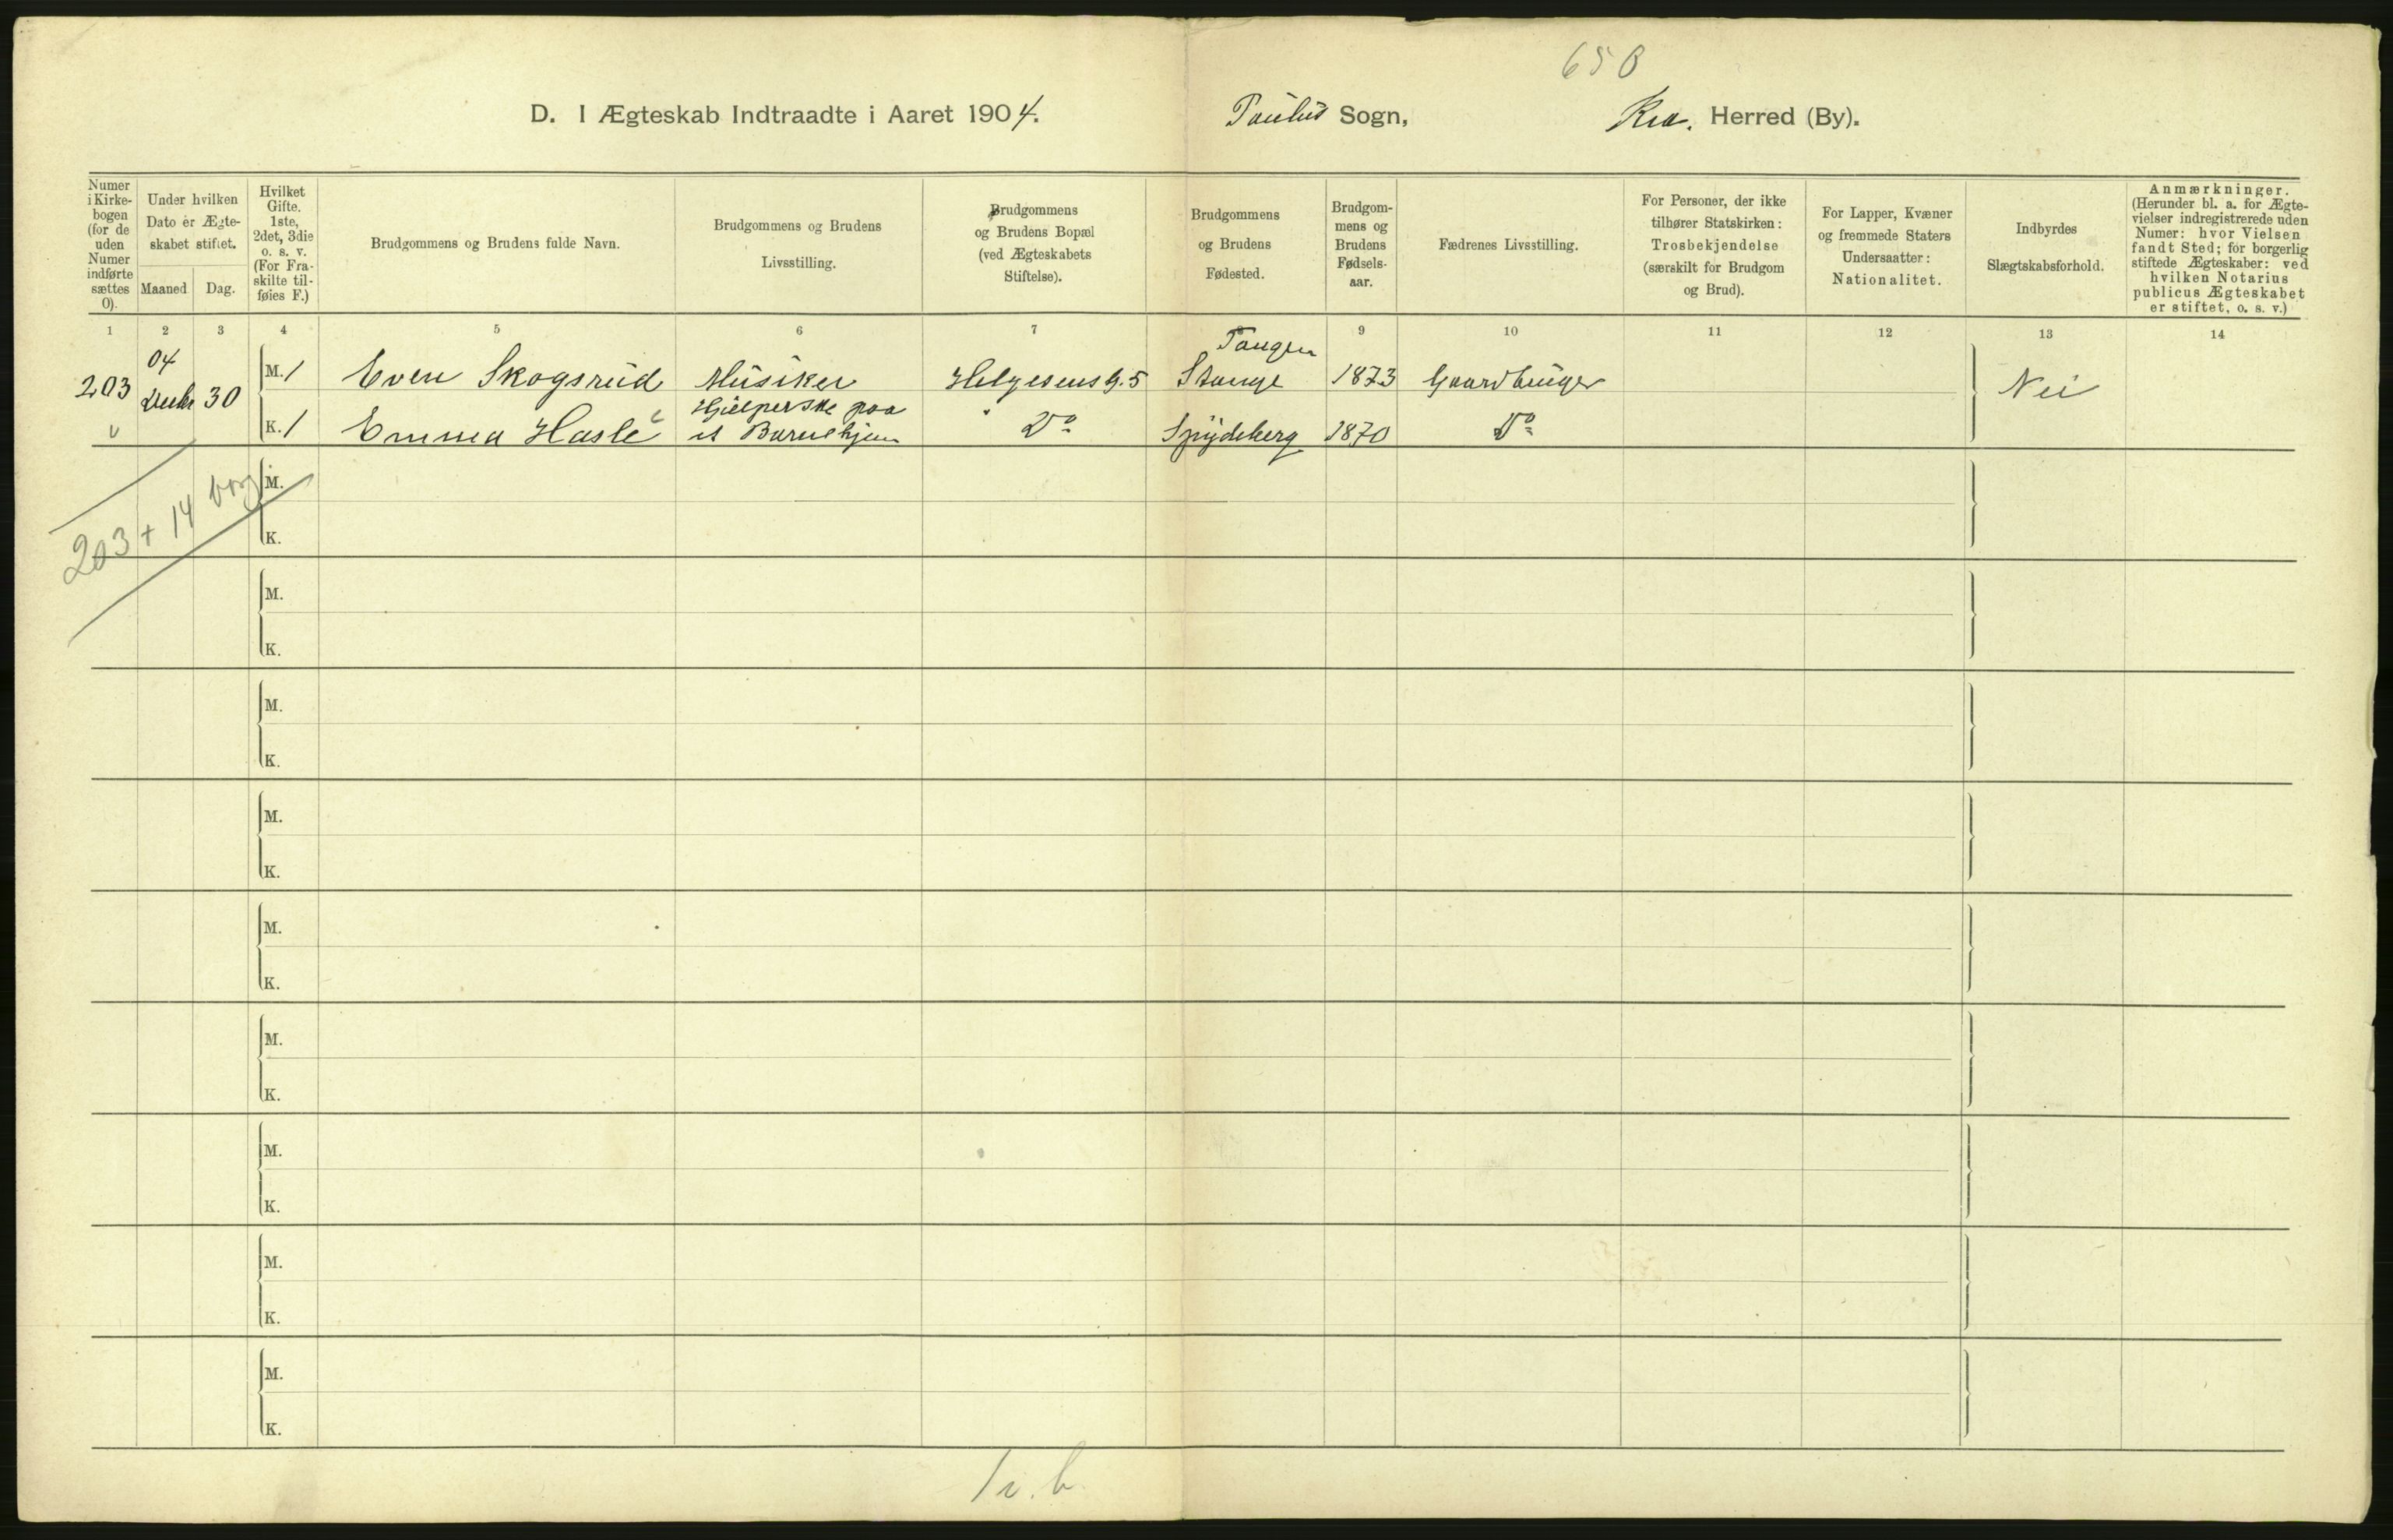 650
D. I Ægteskab Indtraadte i Aaret 1904. Paulus Sogn, Kra. Herred (By).
Numer i Kirkebogen (for de uden Numer indførte sættes 0).
Under hvilken Dato er Ægteskabet stiftet.
Maaned Dag.
Hvilket Gifte. 1ste, 2det, 3die o. s. v. (For Fraskilte tilføies F.)
Brudgommens og Brudens fulde Navn.
Brudgommens og Brudens Livsstilling.
Brudgommens og Brudens Bopæl (ved Ægteskabets Stiftelse).
Brudgommens og Brudens Fødested.
Brudgommens og Brudens Fødselsaar.
Fædrenes Livsstilling.
For Personer, der ikke tilhører Statskirken: Trosbekjendelse (særskilt for Brudgom og Brud).
For Lapper, Kvæner og fremmede Staters Undersaatter: Nationalitet.
Indbyrdes Slægtskabsforhold.
Anmærkninger. (Herunder bl. a. for Ægtevielser indregistrerede uden Numer: hvor Vielsen fandt Sted; for borgerlig stiftede Ægteskaber: ved hvilken Notarius publicus Ægteskabet er stiftet, o. s. v.)
1 2 3 4 5 6 7 9 10 11 12 13 14
04 Tangen
203 Decbr 30 M. 1 Even Skogsrud Musiker Helgesens g. 5 Stange 1873 Gaardbruger Nei
K. 1 Emma Hasle Hjælperske paa et Barnehjem Do Spydeberg 1870 Do
203 + 14 borg
M.
K.
M.
K.
M.
K.
M.
K.
M.
K.
M.
K.
M.
K.
M.
K.
M.
K.